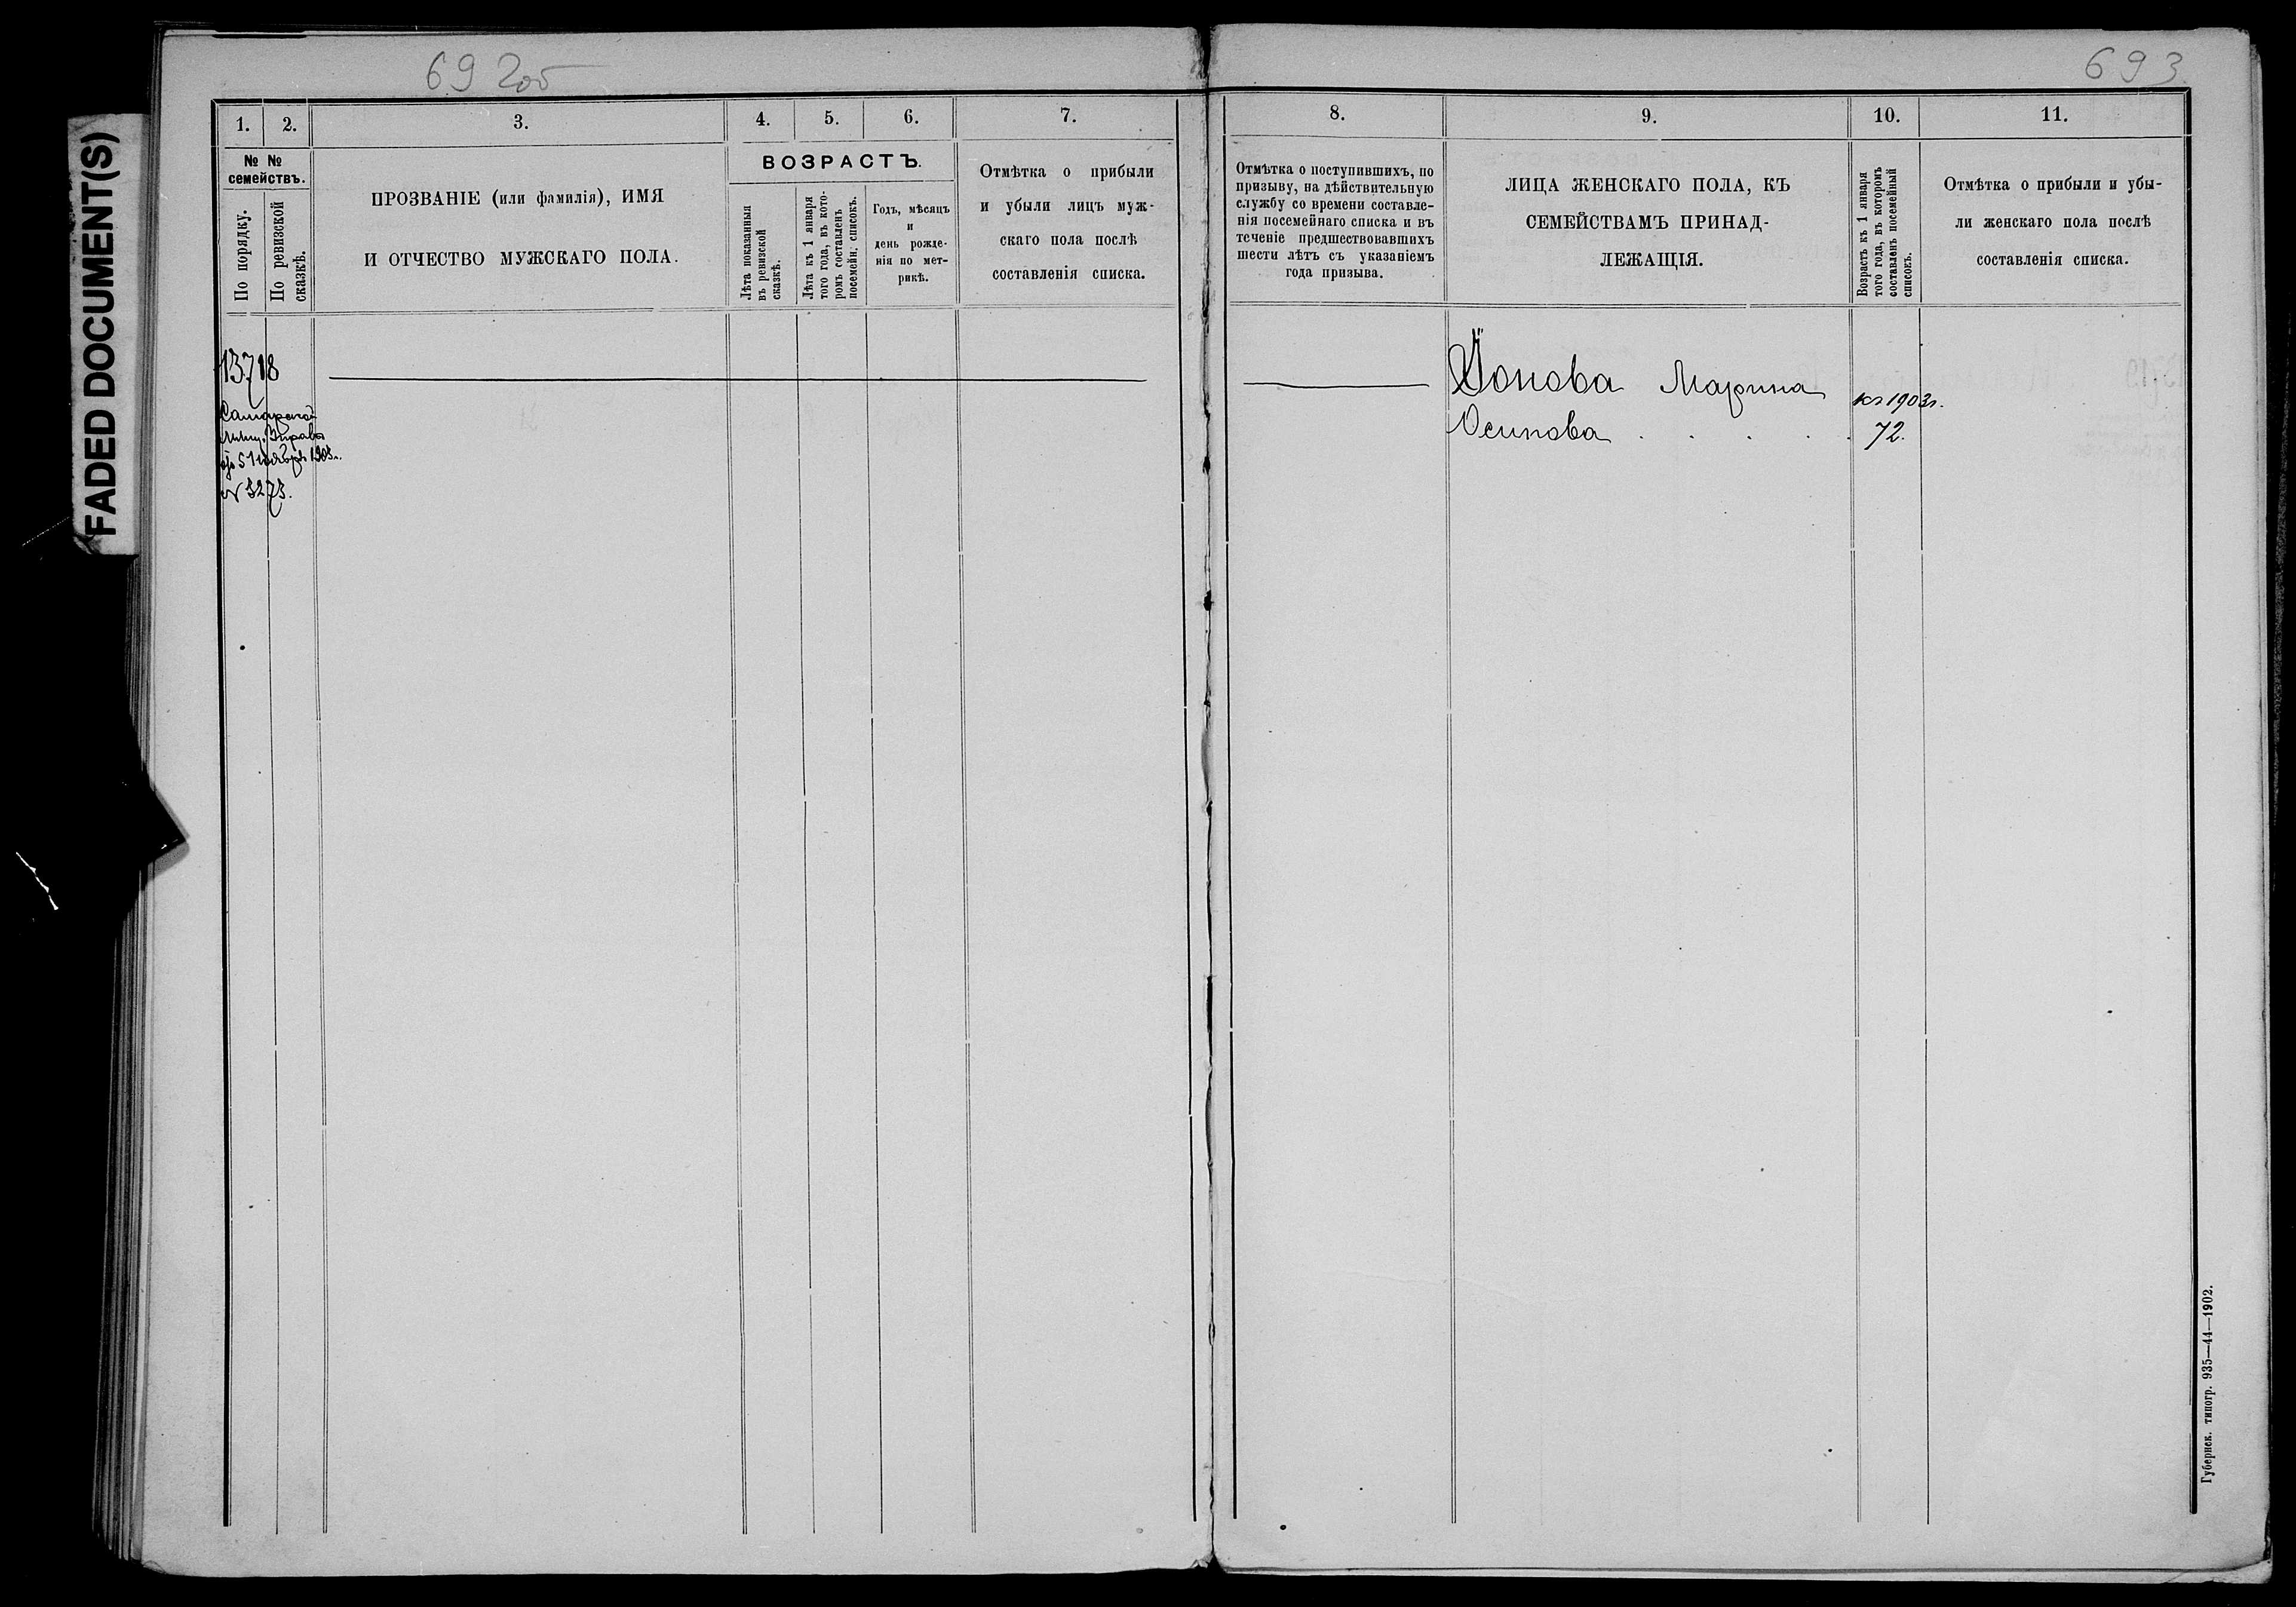 FADED DOCUMENT(S)
692об
693
1. 2. 3. 4. 5. 6. 7.
№ № семействъ.
По порядку.
По ревизской сказкѣ.
ПРОЗВАНІЕ (или фамилія), ИМЯ
И ОТЧЕСТВО МУЖСКАГО ПОЛА.
ВОЗРАСТЪ.
Лѣта показанныя
въ ревизской
сказкѣ.
Лѣта къ 1 января
того года, въ кото-
ромъ составленъ
посемейн. списокъ.
Годъ, мѣсяцъ
и
день рожде-
нія по мет-
рикѣ.
Отмѣтка о прибыли
и убыли лицъ муж-
скаго пола послѣ
составленія списка.
13718
Самарской
Управы
1903г.
№ 5273.
8. 9. 10. 11.
Отмѣтка о поступившихъ, по
призыву, на дѣйствительную
службу со времени составле-
нія посемейнаго списка и въ
теченіе предшествовавшихъ
шести лѣтъ съ указаніемъ
года призыва.
ЛИЦА ЖЕНСКАГО ПОЛА, КЪ
СЕМЕЙСТВАМЪ ПРИНАД-
ЛЕЖАЩІЯ.
Возрастъ къ 1 января
того года, въ которомъ
составленъ посемейный
списокъ.
Отмѣтка о прибыли и убы-
ли женскаго пола послѣ
составленія списка.
Марина
къ 1903г.
Осипова . . . . . 72.
Губернск. типогр. 935—44—1902.